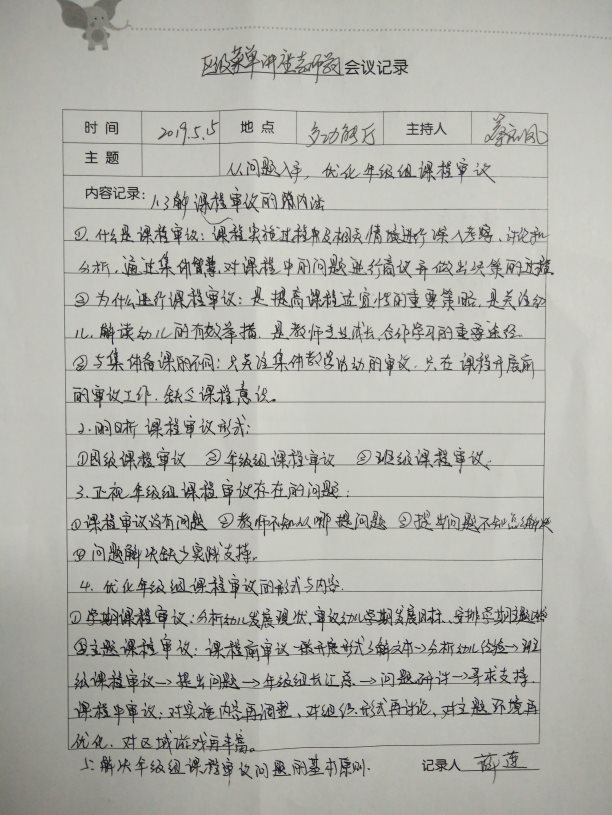 区级菜单讲座 会议记录
时间 2019.5.15 地点 多功能厅 主持人
主题 从问题入手，优化年级组课程审议
内容记录：1.了解课程审议的
①.什么是课程审议：课程实施过程中及相关情境进行深入考察、讨论和
分析，通过集体智慧，对课程中的问题进行商议并做出决策的过程
②为什么进行课程审议：是提高课程适宜性的重要策略，是关注幼
儿，解读幼儿的有效举措，是教师专业成长，合作学习的重要途径。
③与集体备课的不同：只关注集体教学活动的审议，只在课程开展前
的审议工作，缺乏课程意识。
2.明晰课程审议形式：
①园级课程审议 ②年级组课程审议 ③班级课程审议
3.正视年级组课程审议存在的问题：
①课程审议没有问题 ②教师不知从哪提问题 ③提出问题不知怎么解决
④问题解决缺少实践支持。
4.优化年级组课程审议的形式与内容.
①学期课程审议：分析幼儿发展现状，审议幼儿学期发展目标、安排学期主题
②主题课程审议：课程前审议—展开形式了解文本→分析幼儿经验→班
级课程审议→提出问题→年级组长汇总→问题研讨→寻求支持.
课程中审议：对实施内容再调整，对组织形式再讨论，对主题环境再
优化，对区域游戏再丰富。
5.解决年级组课程审议问题的基本原则. 记录人 薛莲